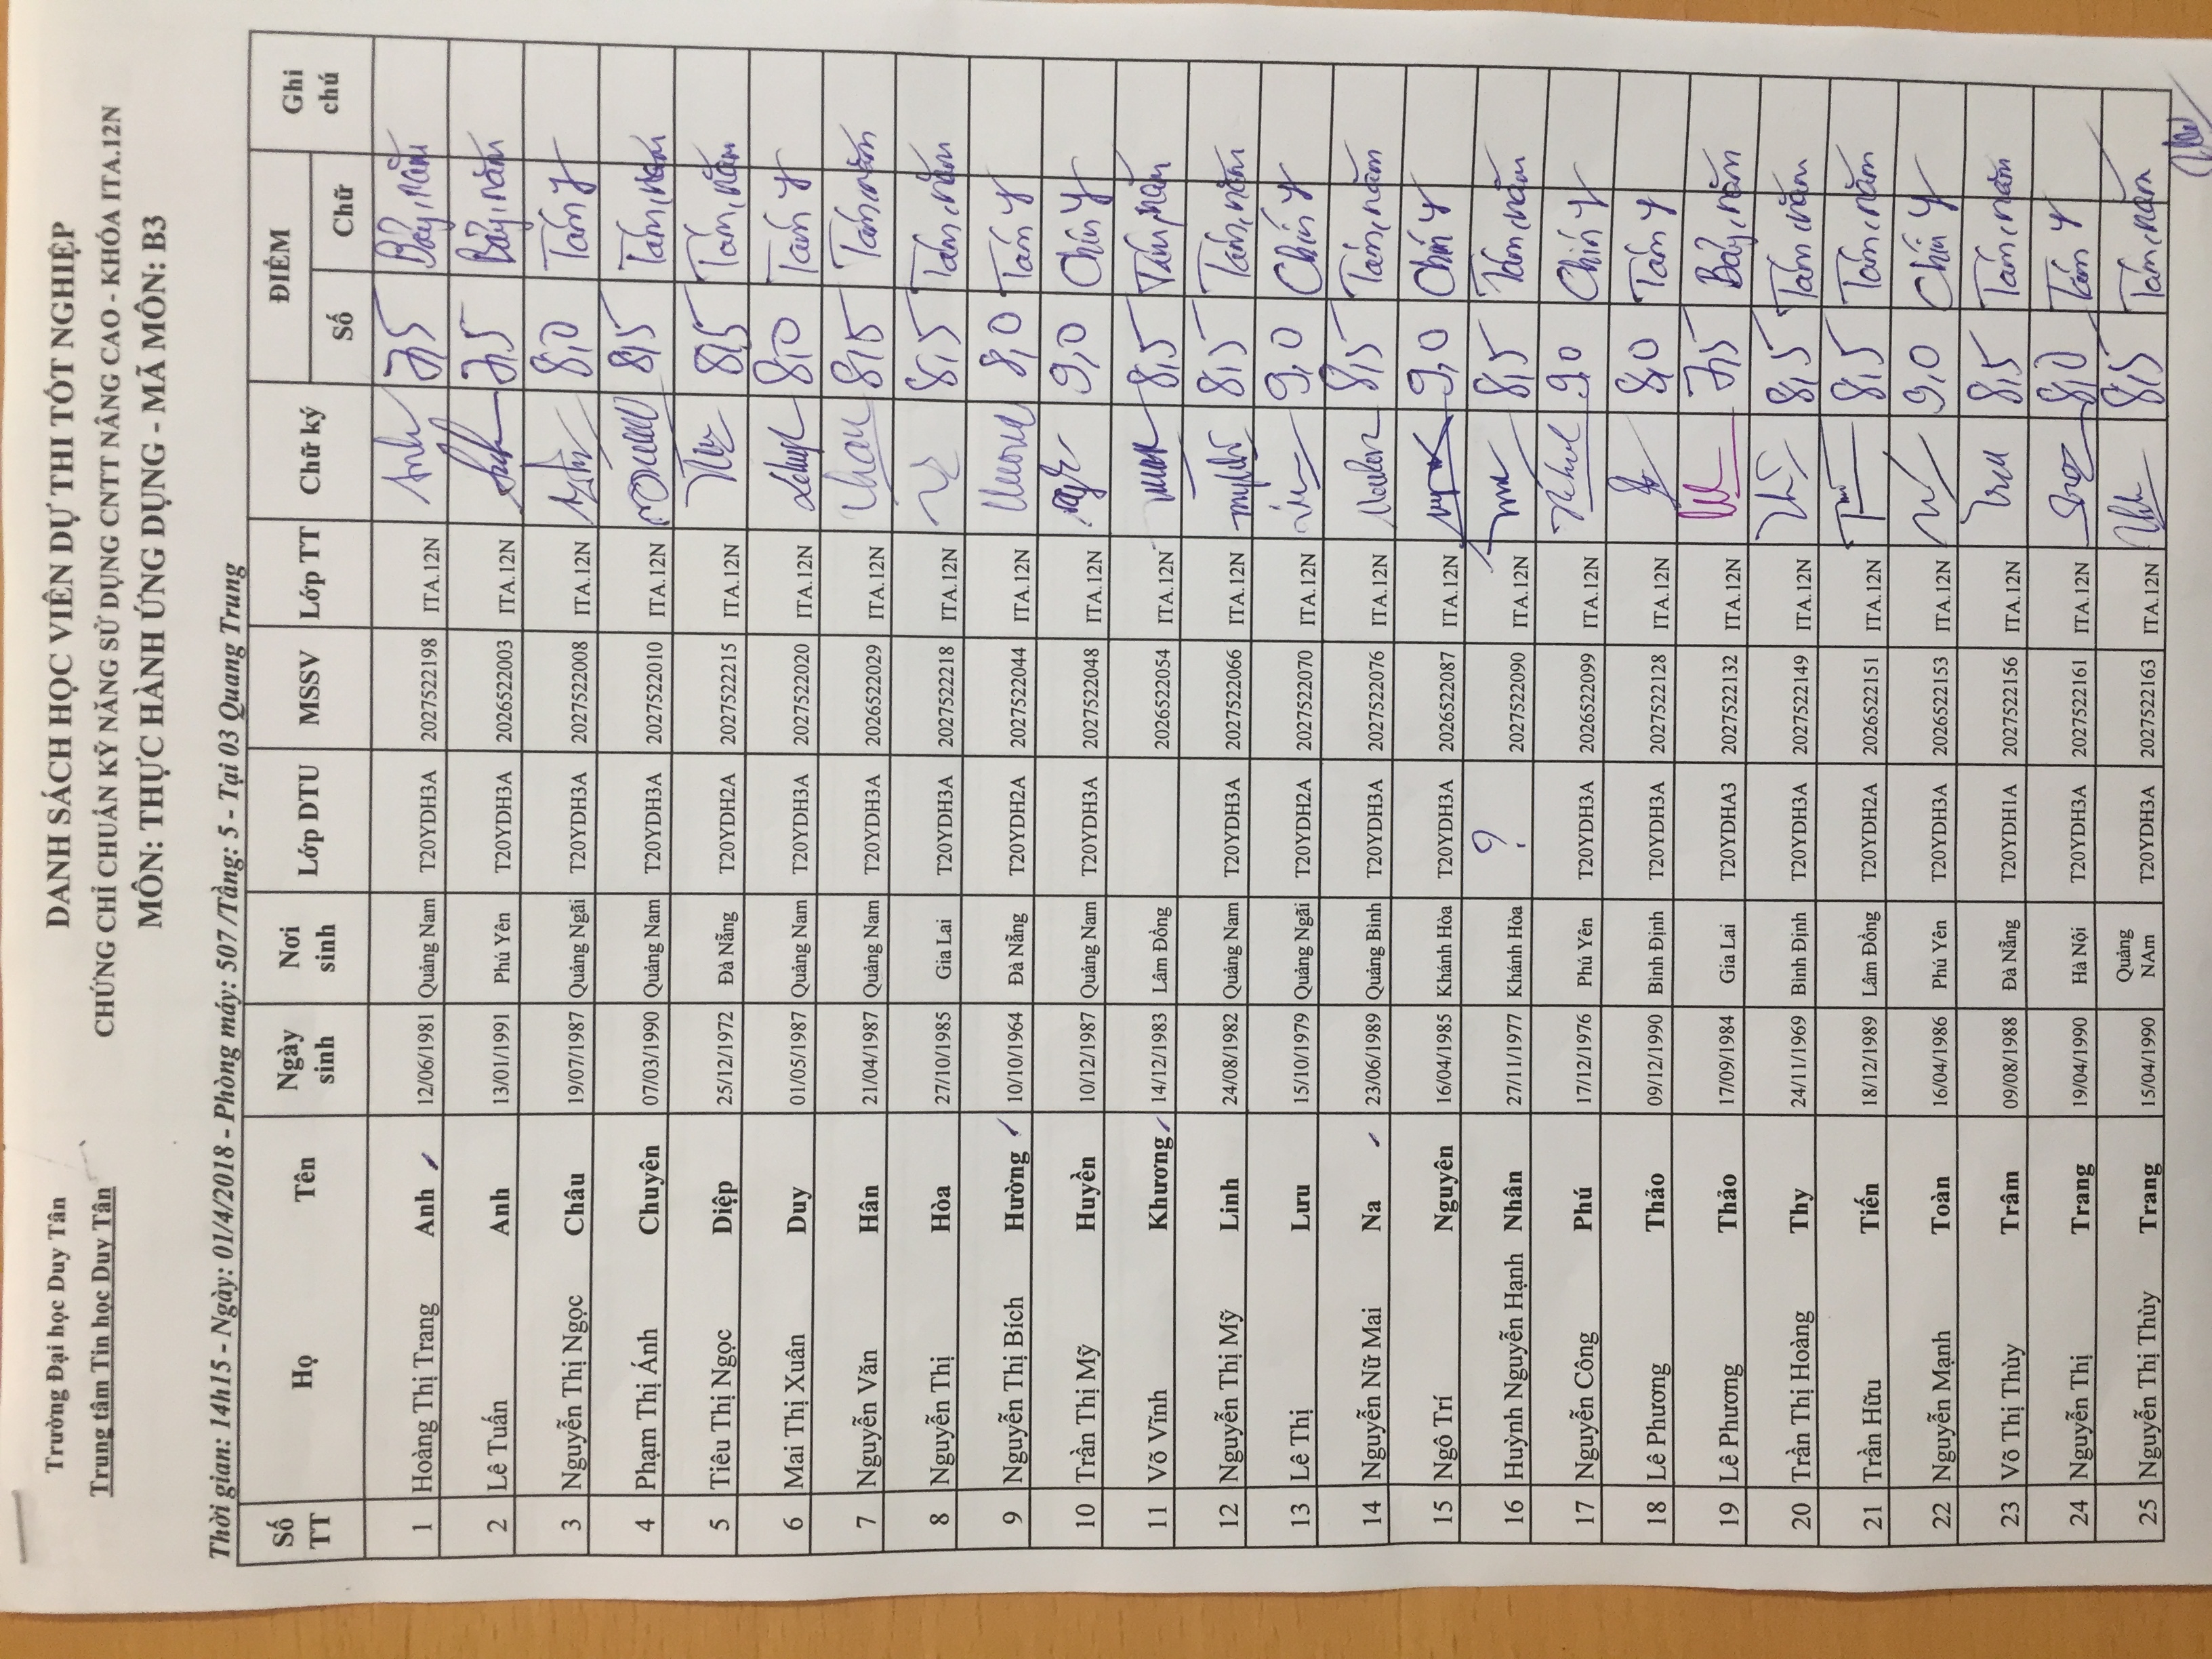 Trường Đại học Duy Tân
Trung tâm Tin học Duy Tân
DANH SÁCH HỌC VIÊN DỰ THI TỐT NGHIỆP
CHỨNG CHỈ CHUẨN KỸ NĂNG SỬ DỤNG CNTT NÂNG CAO - KHÓA ITA.12N
MÔN: THỰC HÀNH ỨNG DỤNG - MÃ MÔN: B3
Thời gian: 14h15 - Ngày: 01/4/2018 - Phòng máy: 507 /Tầng: 5 - Tại 03 Quang Trung
Số TT Họ Tên Ngày sinh Nơi sinh Lớp DTU MSSV Lớp TT Chữ ký ĐIỂM Ghi chú
Số Chữ
1 Hoàng Thị Trang Anh 12/06/1981 Quảng Nam T20YDH3A 2027522198 ITA.12N Anh 7,5 Bảy, năm
2 Lê Tuấn Anh 13/01/1991 Phú Yên T20YDH3A 2026522003 ITA.12N 7,5 Bảy, năm
3 Nguyễn Thị Ngọc Châu 19/07/1987 Quảng Ngãi T20YDH3A 2027522008 ITA.12N 8,0 Tám y
4 Phạm Thị Ánh Chuyên 07/03/1990 Quảng Nam T20YDH3A 2027522010 ITA.12N 8,5 Tám, năm
5 Tiêu Thị Ngọc Diệp 25/12/1972 Đà Nẵng T20YDH2A 2027522215 ITA.12N 8,5 Tám, năm
6 Mai Thị Xuân Duy 01/05/1987 Quảng Nam T20YDH3A 2027522020 ITA.12N 8,0 Tám y
7 Nguyễn Văn Hân 21/04/1987 Quảng Nam T20YDH2A 2026522029 ITA.12N 8,5 Tám, năm
8 Nguyễn Thị Hòa 27/10/1985 Gia Lai T20YDH3A 2027522218 ITA.12N 8,5 Tám, năm
9 Nguyễn Thị Bích Hường 10/10/1964 Đà Nẵng T20YDH2A 2027522044 ITA.12N 8,0 Tám y
10 Trần Thị Mỹ Huyền 10/12/1987 Quảng Nam T20YDH3A 2027522048 ITA.12N 9,0 Chín y
11 Võ Vĩnh Khương 14/12/1983 Lâm Đồng 2026522054 ITA.12N 8,5 Tám, năm
12 Nguyễn Thị Mỹ Linh 24/08/1982 Quảng Nam T20YDH3A 2027522066 ITA.12N 8,5 Tám, năm
13 Lê Thị Lưu 15/10/1979 Quảng Ngãi T20YDH2A 2027522070 ITA.12N 9,0 Chín y
14 Nguyễn Nữ Mai Na 23/06/1989 Quảng Bình T20YDH3A 2027522076 ITA.12N 8,5 Tám, năm
15 Ngô Trí Nguyên 16/04/1985 Khánh Hòa T20YDH3A 2026522087 ITA.12N 9,0 Chín y
16 Huỳnh Nguyễn Hạnh Nhân 27/11/1977 Khánh Hòa ? 2027522090 ITA.12N 8,5 Tám, năm
17 Nguyễn Công Phú 17/12/1976 Phú Yên T20YDH3A 2026522099 ITA.12N 9,0 Chín y
18 Lê Phương Thảo 09/12/1990 Bình Định T20YDH3A 2027522128 ITA.12N 8,0 Tám y
19 Lê Phương Thảo 17/09/1984 Gia Lai T20YDHA3 2027522132 ITA.12N 7,5 Bảy, năm
20 Trần Thị Hoàng Thy 24/11/1969 Bình Định T20YDH3A 2027522149 ITA.12N 8,5 Tám, năm
21 Trần Hữu Tiến 18/12/1989 Lâm Đồng T20YDH2A 2026522151 ITA.12N 8,5 Tám, năm
22 Nguyễn Mạnh Toàn 16/04/1986 Phú Yên T20YDH3A 2026522153 ITA.12N 9,0 Chín y
23 Võ Thị Thùy Trâm 09/08/1988 Đà Nẵng T20YDH1A 2027522156 ITA.12N 8,5 Tám, năm
24 Nguyễn Thị Trang 19/04/1990 Hà Nội T20YDH3A 2027522161 ITA.12N 8,0 Tám y
25 Nguyễn Thị Thùy Trang 15/04/1990 Quảng NAm T20YDH3A 2027522163 ITA.12N 8,5 Tám, năm